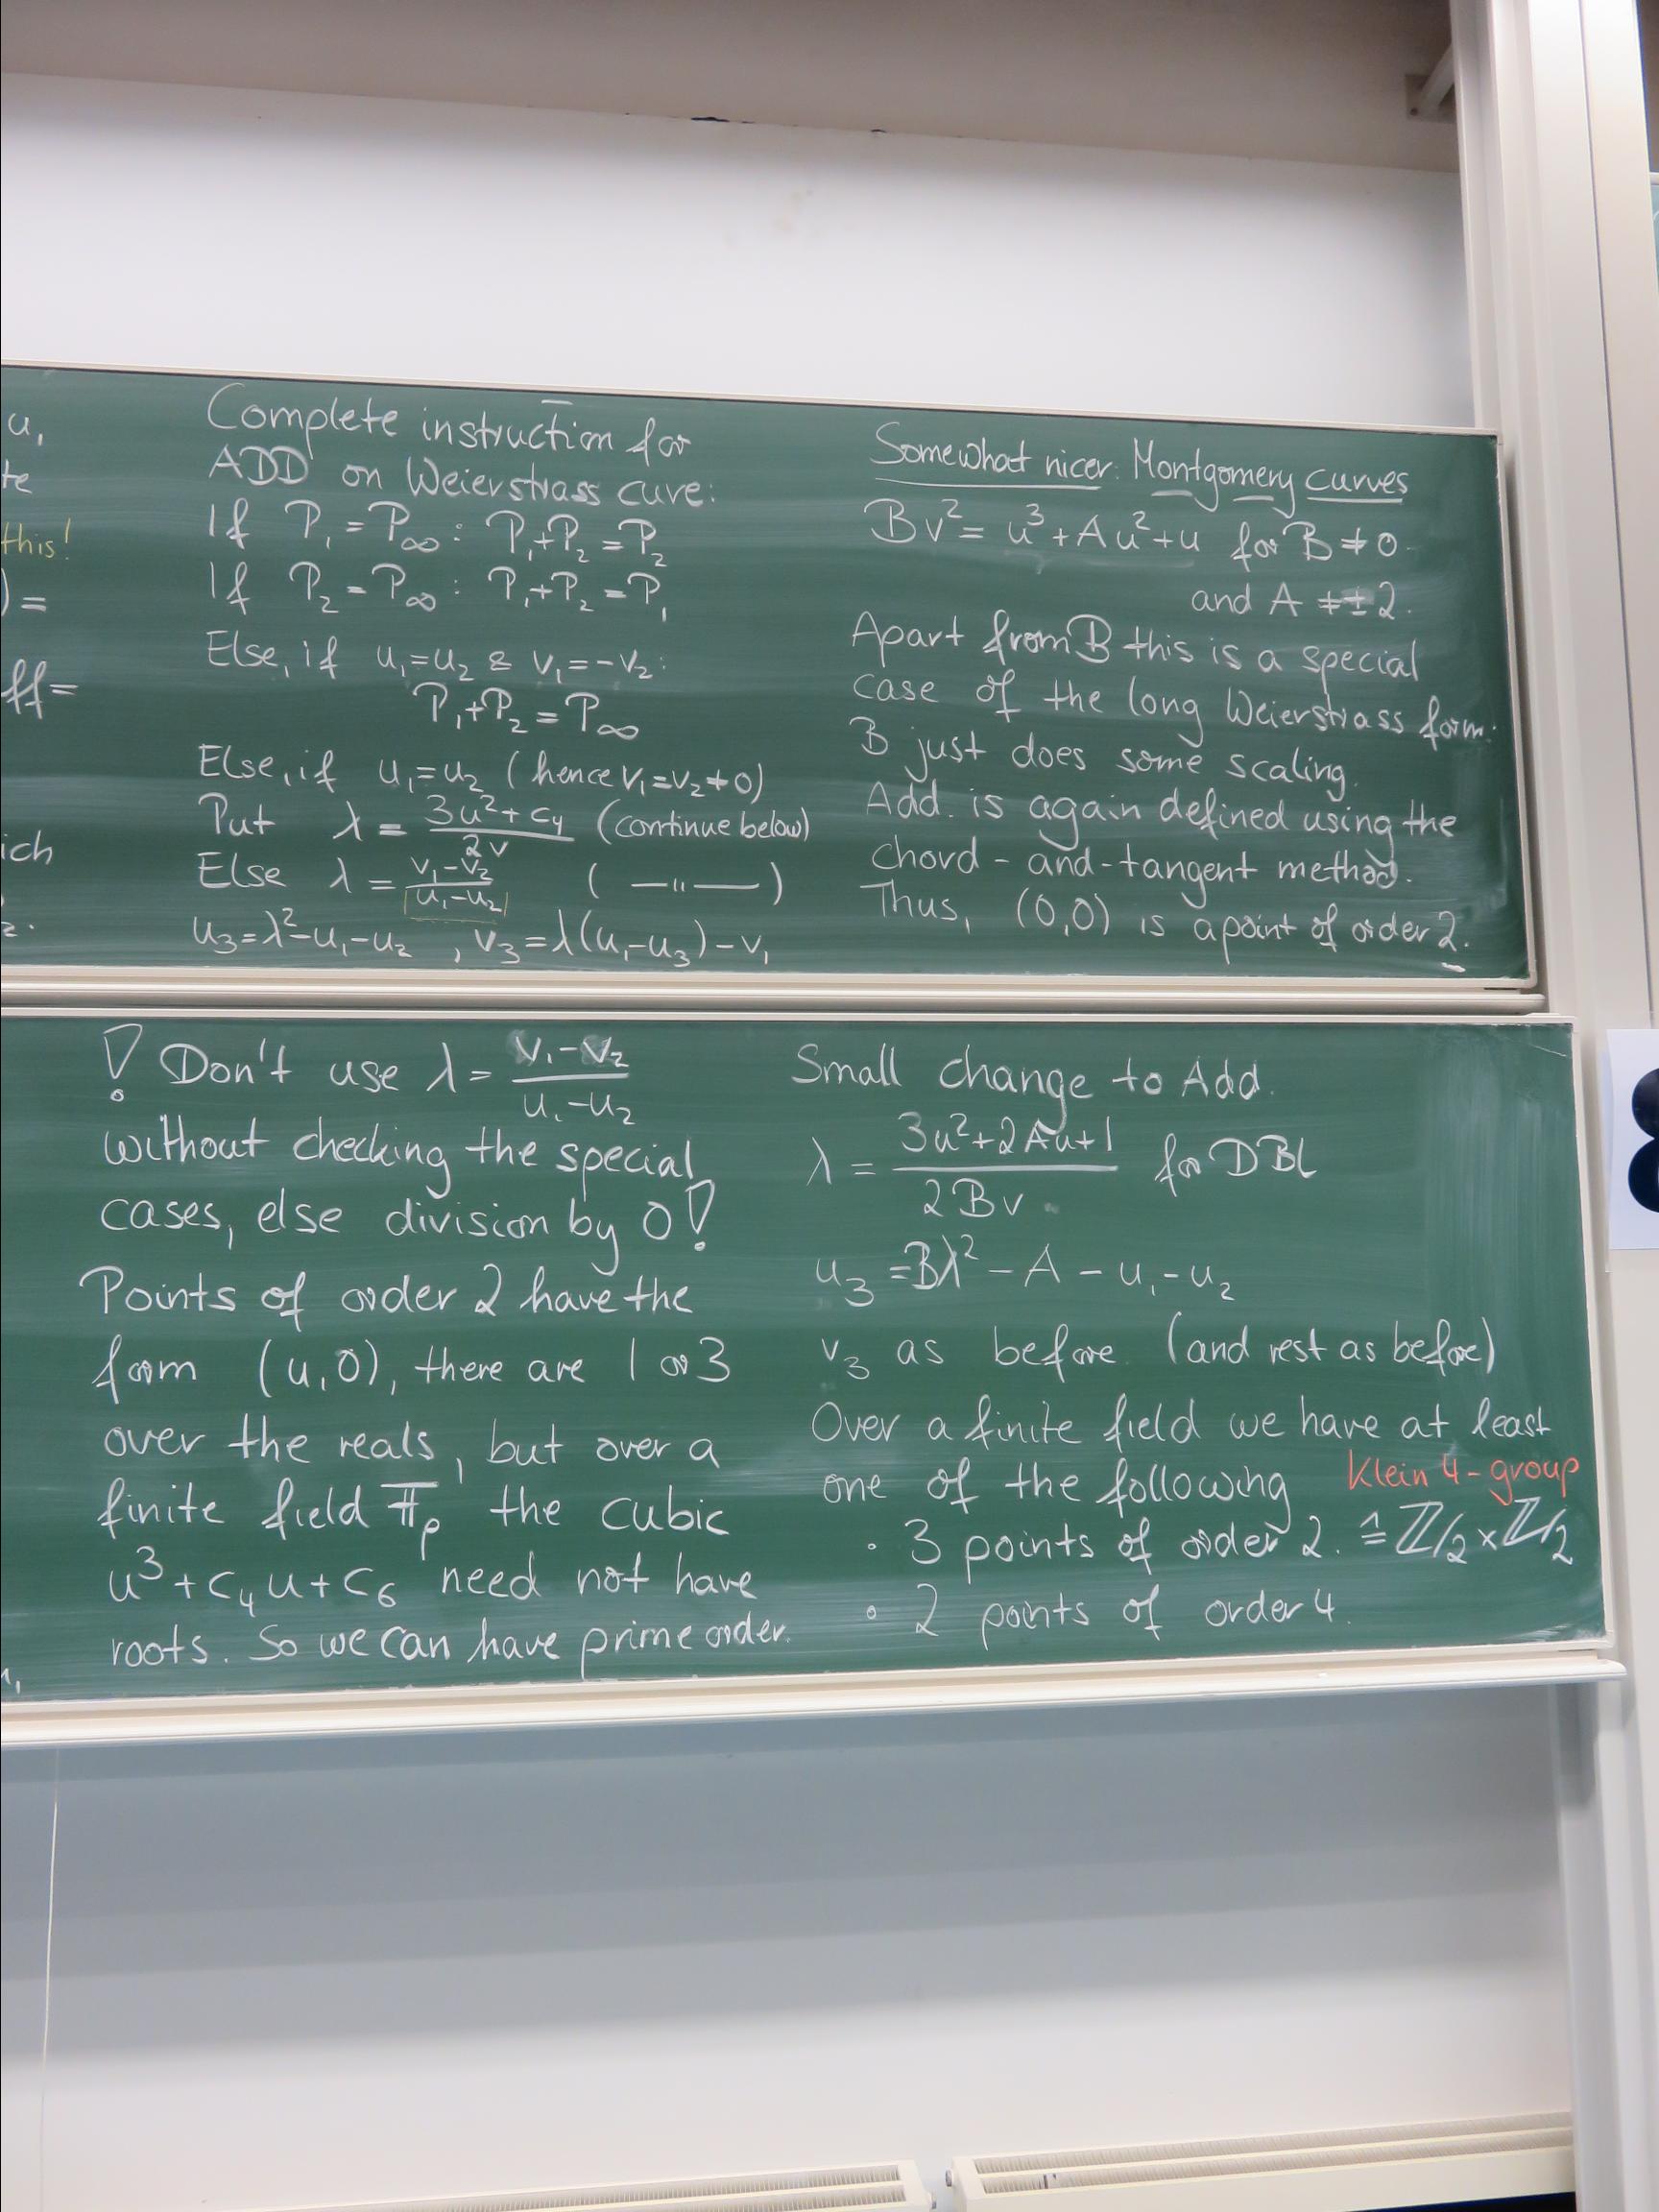 u₁
te
this!
) =
ff=
ich
2.
Complete instruction for
ADD on Weierstrass cuve:
If P₁ = P∞ : P₁+P₂ = P₂
If P₂ = P∞ : P₁+P₂ = P₁
Else, if u₁=u₂ & v₁=-v₂:
P₁+P₂ = P∞
Else, if u₁=u₂ (hence v₁=v₂≠0)
Put λ = (3u²+c₄)/(2v) (continue below)
Else λ = (v₁-v₂)/(u₁-u₂) ( —"— )
u₃=λ²-u₁-u₂ , v₃=λ(u₁-u₃)-v₁
Somewhat nicer: Montgomery curves
Bv² = u³+Au²+u for B≠0
and A ≠±2.
Apart from B this is a special
case of the long Weierstrass form.
B just does some scaling.
Add. is again defined using the
chord-and-tangent method.
Thus, (0,0) is a point of order 2.
! Don't use λ = (v₁-v₂)/(u₁-u₂)
without checking the special
cases, else division by 0!
Points of order 2 have the
form (u,0), there are 1 or 3
over the reals, but over a
finite field 𝔽p the cubic
u³+c₄u+c₆ need not have
roots. So we can have prime order.
Small change to Add.
λ = (3u²+2Au+1)/(2Bv) for DBL
u₃ = Bλ² - A - u₁ - u₂
v₃ as before (and rest as before)
Over a finite field we have at least
one of the following
Klein 4-group
• 3 points of order 2. ≙ ℤ/2 × ℤ/2
• 2 points of order 4.